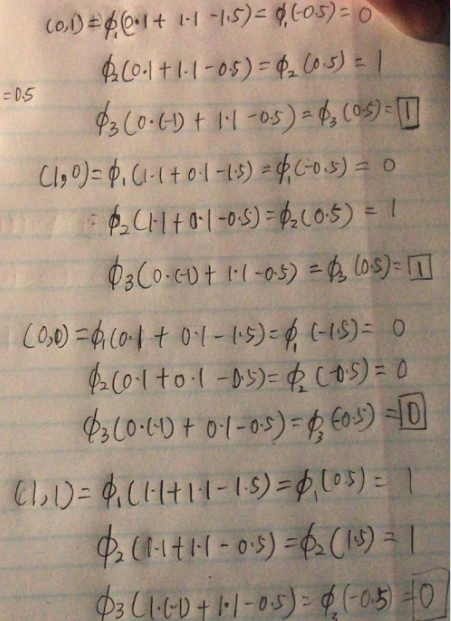 (0,1) = ϕ₁(0·1 + 1·1 -1.5) = ϕ₁(-0.5) = 0
ϕ₂(0·1 + 1·1 - 0.5) = ϕ₂(0.5) = 1
= 0.5
ϕ₃(0·(-1) + 1·1 - 0.5) = ϕ₃(0.5) = 1
(1,0) = ϕ₁(1·1 + 0·1 - 1.5) = ϕ₁(-0.5) = 0
ϕ₂(1·1 + 0·1 - 0.5) = ϕ₂(0.5) = 1
ϕ₃(0·(-1) + 1·1 - 0.5) = ϕ₃(0.5) = 1
(0,0) = ϕ₁(0·1 + 0·1 - 1.5) = ϕ₁(-1.5) = 0
ϕ₂(0·1 + 0·1 - 0.5) = ϕ₂(-0.5) = 0
ϕ₃(0·(-1) + 0·1 - 0.5) = ϕ₃(-0.5) = 0
(1,1) = ϕ₁(1·1 + 1·1 - 1.5) = ϕ₁(0.5) = 1
ϕ₂(1·1 + 1·1 - 0.5) = ϕ₂(1.5) = 1
ϕ₃(1·(-1) + 1·1 - 0.5) = ϕ₃(-0.5) = 0